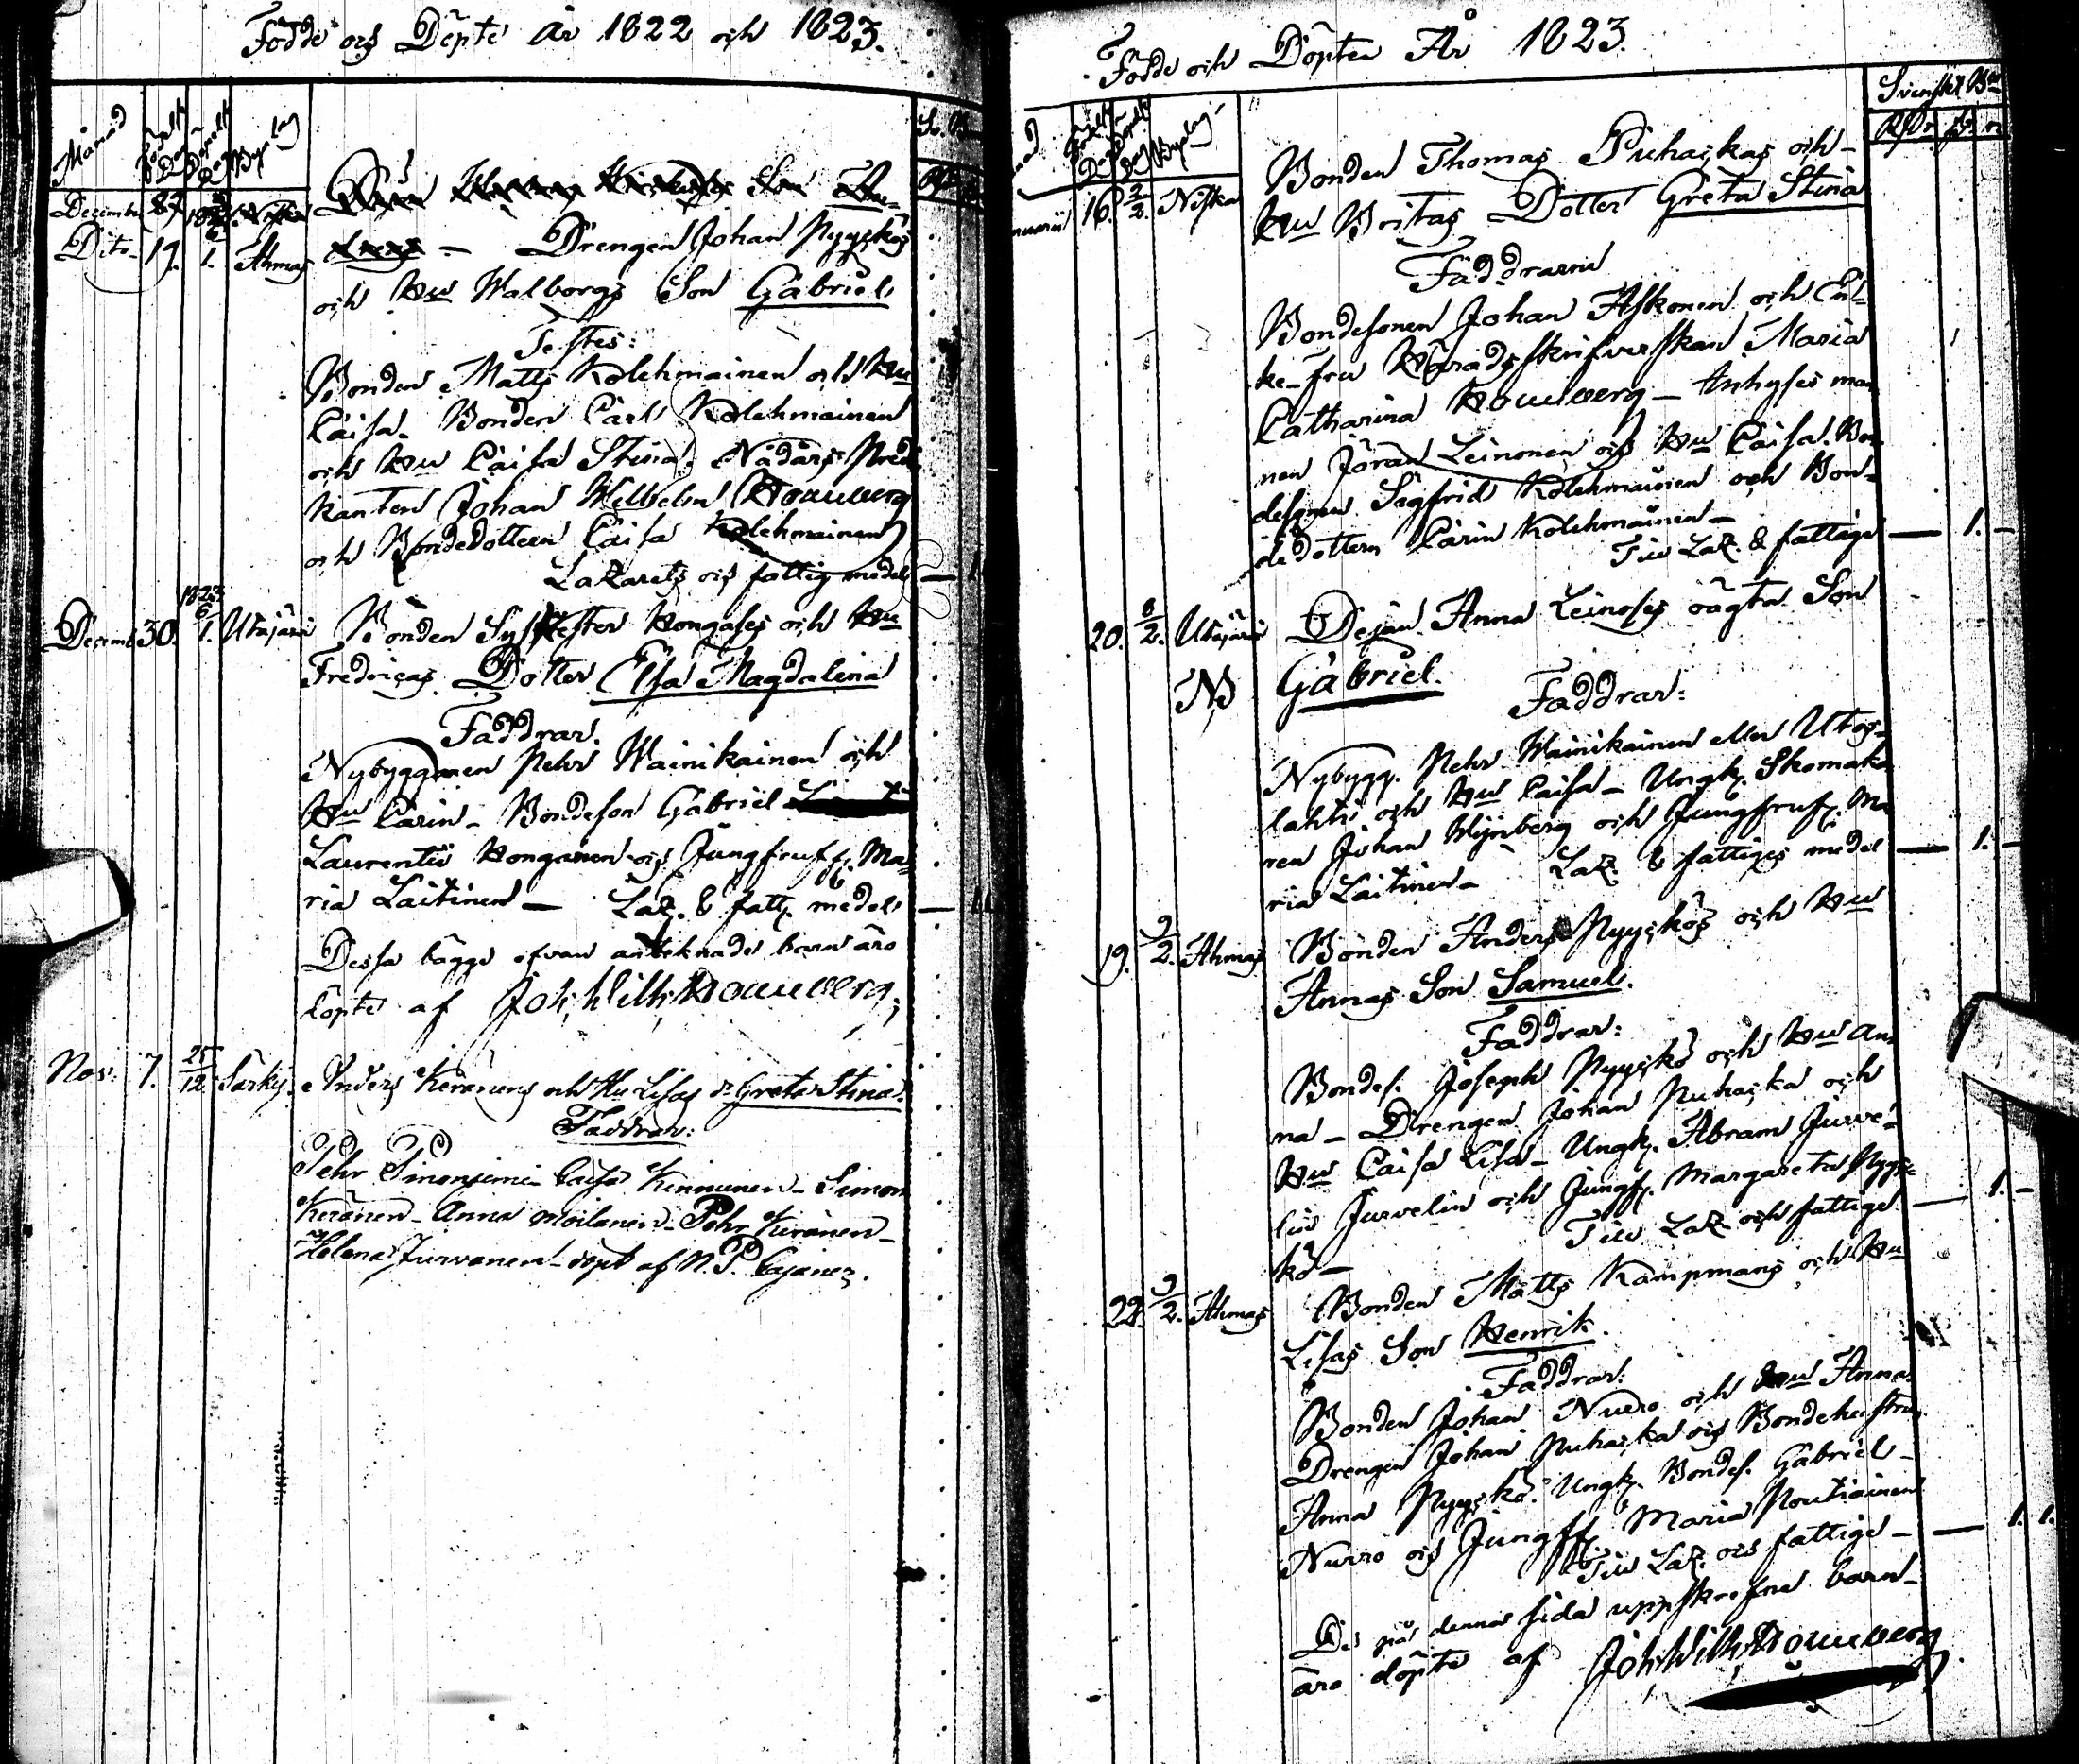 Födde och Döpte År 1822 och 1823.
Månad Födelse Dag Döpelse Dag Byalag
Sv. B
Decemb. 27
Dito 17. 6/1. Ahmas — Drengen Johan Pyyckös
och Hu Walborgs Son Gabriel
Testes:
Bonden Matts Kolehmainen och Hu
Caisa. Bonden Carl Kolehmainen
och Hu Caisa Stina. Nådårs Predi-
kanten Johan Wilhelm Hornborg
och Bondedottern Caisa Kolehmainen
Lazarets och fattig medel — 1
Decemb. 30. 1823 6/1. Utajärvi Bonden Sylvester Hongases och Hu
Fredricas Dotter Elsa Magdalena
Faddrar.
Nybyggaren Pehr Wainikainen och
Hu Carin — Bondeson Gabriel
Laurentii Honganen och Jungfruf. Ma-
ria Laitinen — Laz. & fatt. medel —
Dessa bägge ofvan anteknade barn äro
döpte af Joh. Wilh. Hornborg.
Nov. 7. 25/12. Särkij. Anders Keränens och Hu Lisas dr Greta Stina.
Faddrar:
Pehr Simonjemi Caisa Kinnunen — Simon
Keränen — Anna Moilanen — Pehr Keränen —
Helena Jurvanen — döpt af N. P. Cajanes.
Födde och Döpter År 1823.
Födelse Dag Döpelse Dag Byalag
Svenskt B
RDr
nuarii 16. 2/2. Niska Bonden Thomas Puhackas och
Hu Britas Dotter Greta Stina
Faddrarne
Bondesonen Johan Askonen och En-
ke-fru Häradsskrifverskan Maria
Catharina Hornborg — Inhyses man-
nen Jöran Leinonen och Hu Caisa. Bon-
desonen Sigfrid Kolehmainen och Bon-
dedottern Carin Kolehmainen —
Till Laz. & fattige — 1. —
20. 8/2. Utajärvi Dejan Anna Leinoses oägta Son
NB Gabriel. Faddrar:
Nybygg. Pehr Wainikainen eller Utos-
lahti och Hu Caisa — Ungk. Skomaka-
ren Johan Wijnberg och Jungfruf. Ma-
ria Laitinen — Laz. & fattiges medel — 1. —
19. 9/2. Ahmas Bonden Anders Pyyckös och Hu
Annas Son Samuel.
Faddrar:
Bondes. Joseph Pyyckö och Hu An-
na — Drengen Johan Puhacka och
Hu Caisa Lisa — Ungk. Abram Jurve-
lius Jurvelin och Jungf. Margareta Pyyc-
kö — Till Laz. och fattige — 1. —
22. 9/2. Ahmas Bonden Matts Kämpmans och Hu
Lisas Son Henrik.
Faddrar:
Bonden Johan Nurro och Hu Anna.
Drengen Johan Puhacka och Bondehustrun
Anna Pyyckö. Ungk. Bondes. Gabriel
Nurro och Jungff. Maria Poutiainen
Till Laz. och fattige — 1. 1.
De på denna sida uppskrefne barn
äro döpte af Joh. Wilh. Hornborg.